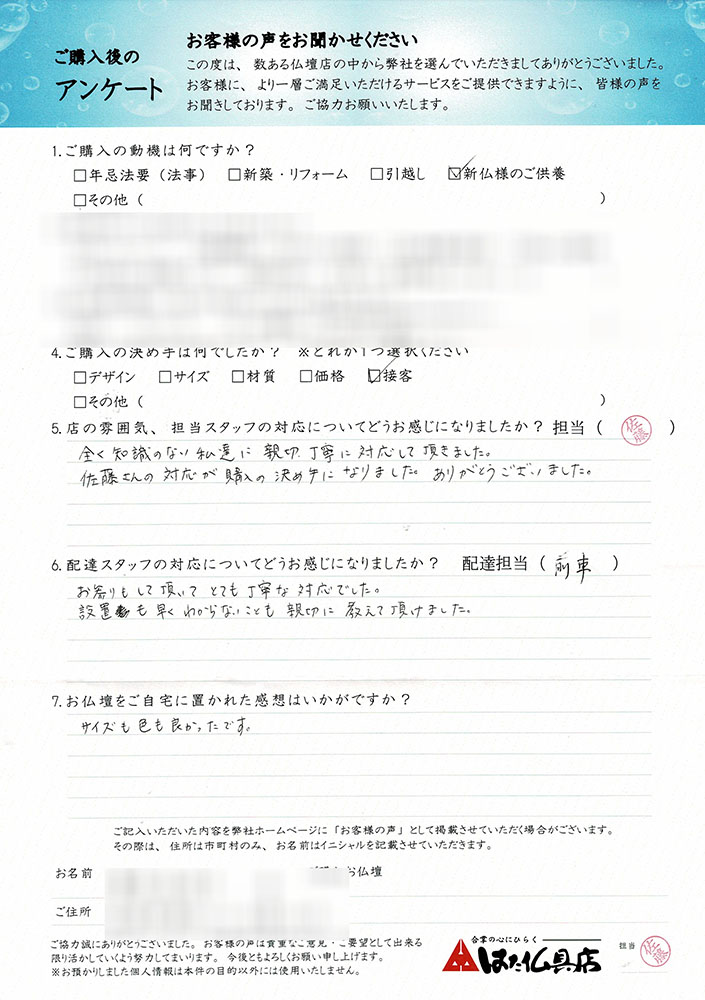 ご購入後の
アンケート
お客様の声をお聞かせください
この度は、数ある仏壇店の中から弊社を選んでいただきましてありがとうございました。
お客様に、より一層ご満足いただけるサービスをご提供できますように、皆様の声を
お聞きしております。ご協力お願いいたします。
1.ご購入の動機は何ですか？
□年忌法要（法事） □新築・リフォーム □引越し ☑新仏様のご供養
□その他（ ）
4.ご購入の決め手は何でしたか？ ※どれか1つ選択ください
□デザイン □サイズ □材質 □価格 ☑接客
□その他（ ）
5.店の雰囲気、担当スタッフの対応についてどうお感じになりましたか？ 担当（ 佐藤 ）
全く知識のない私達に親切、丁寧に対応して頂きました。
佐藤さんの対応が購入の決め手になりました。ありがとうございました。
6.配達スタッフの対応についてどうお感じになりましたか？ 配達担当（ 前車 ）
お祭りもして頂いてとても丁寧な対応でした。
設置も早くわからないことも親切に教えて頂けました。
7.お仏壇をご自宅に置かれた感想はいかがですか？
サイズも色も良かったです。
ご記入いただいた内容を弊社ホームページに「お客様の声」として掲載させていただく場合がございます。
その際は、住所は市町村のみ、お名前はイニシャルを記載させていただきます。
お名前
お仏壇
ご住所
ご協力誠にありがとうございました。お客様の声は貴重なご意見・ご要望として出来る
限り活かしていくよう努力してまいります。今後ともよろしくお願い申し上げます。
※お預かりしました個人情報は本件の目的以外には使用いたしません。
合掌の心にひらく
はた仏具店
担当 佐藤